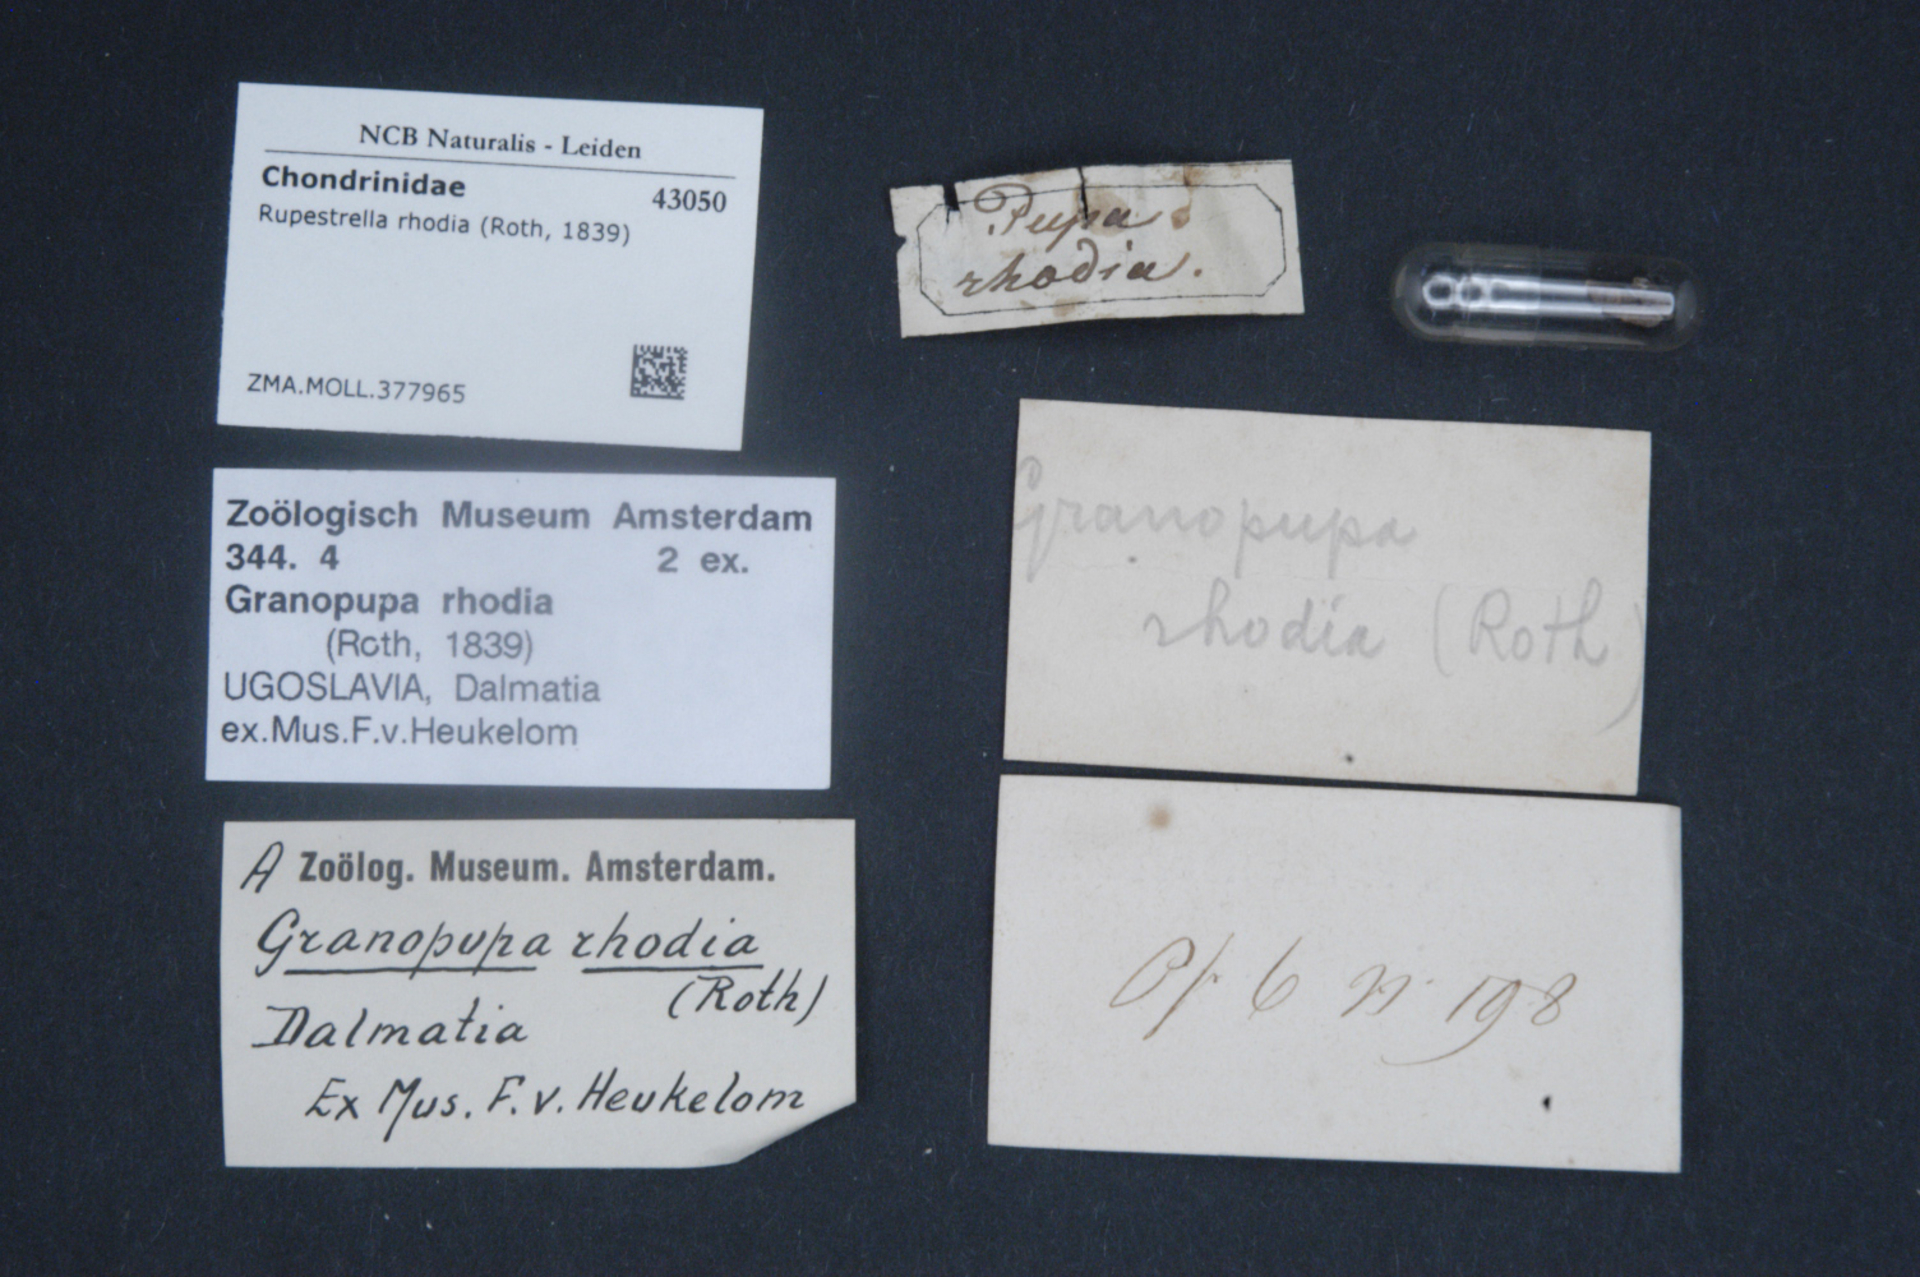 NCB Naturalis - Leiden
Chondrinidae 43050
Rupestrella rhodia (Roth, 1839)
ZMA.MOLL.377965
Zoölogisch Museum Amsterdam
344. 4 2 ex.
Granopupa rhodia
(Roth, 1839)
UGOSLAVIA, Dalmatia
ex.Mus.F.v.Heukelom
A Zoölog. Museum. Amsterdam.
Granopupa rhodia
(Roth)
Dalmatia
Ex Mus. F. v. Heukelom
Pupa
rhodia.
Granopupa
rhodia (Roth)
Pf. 6 n. 198